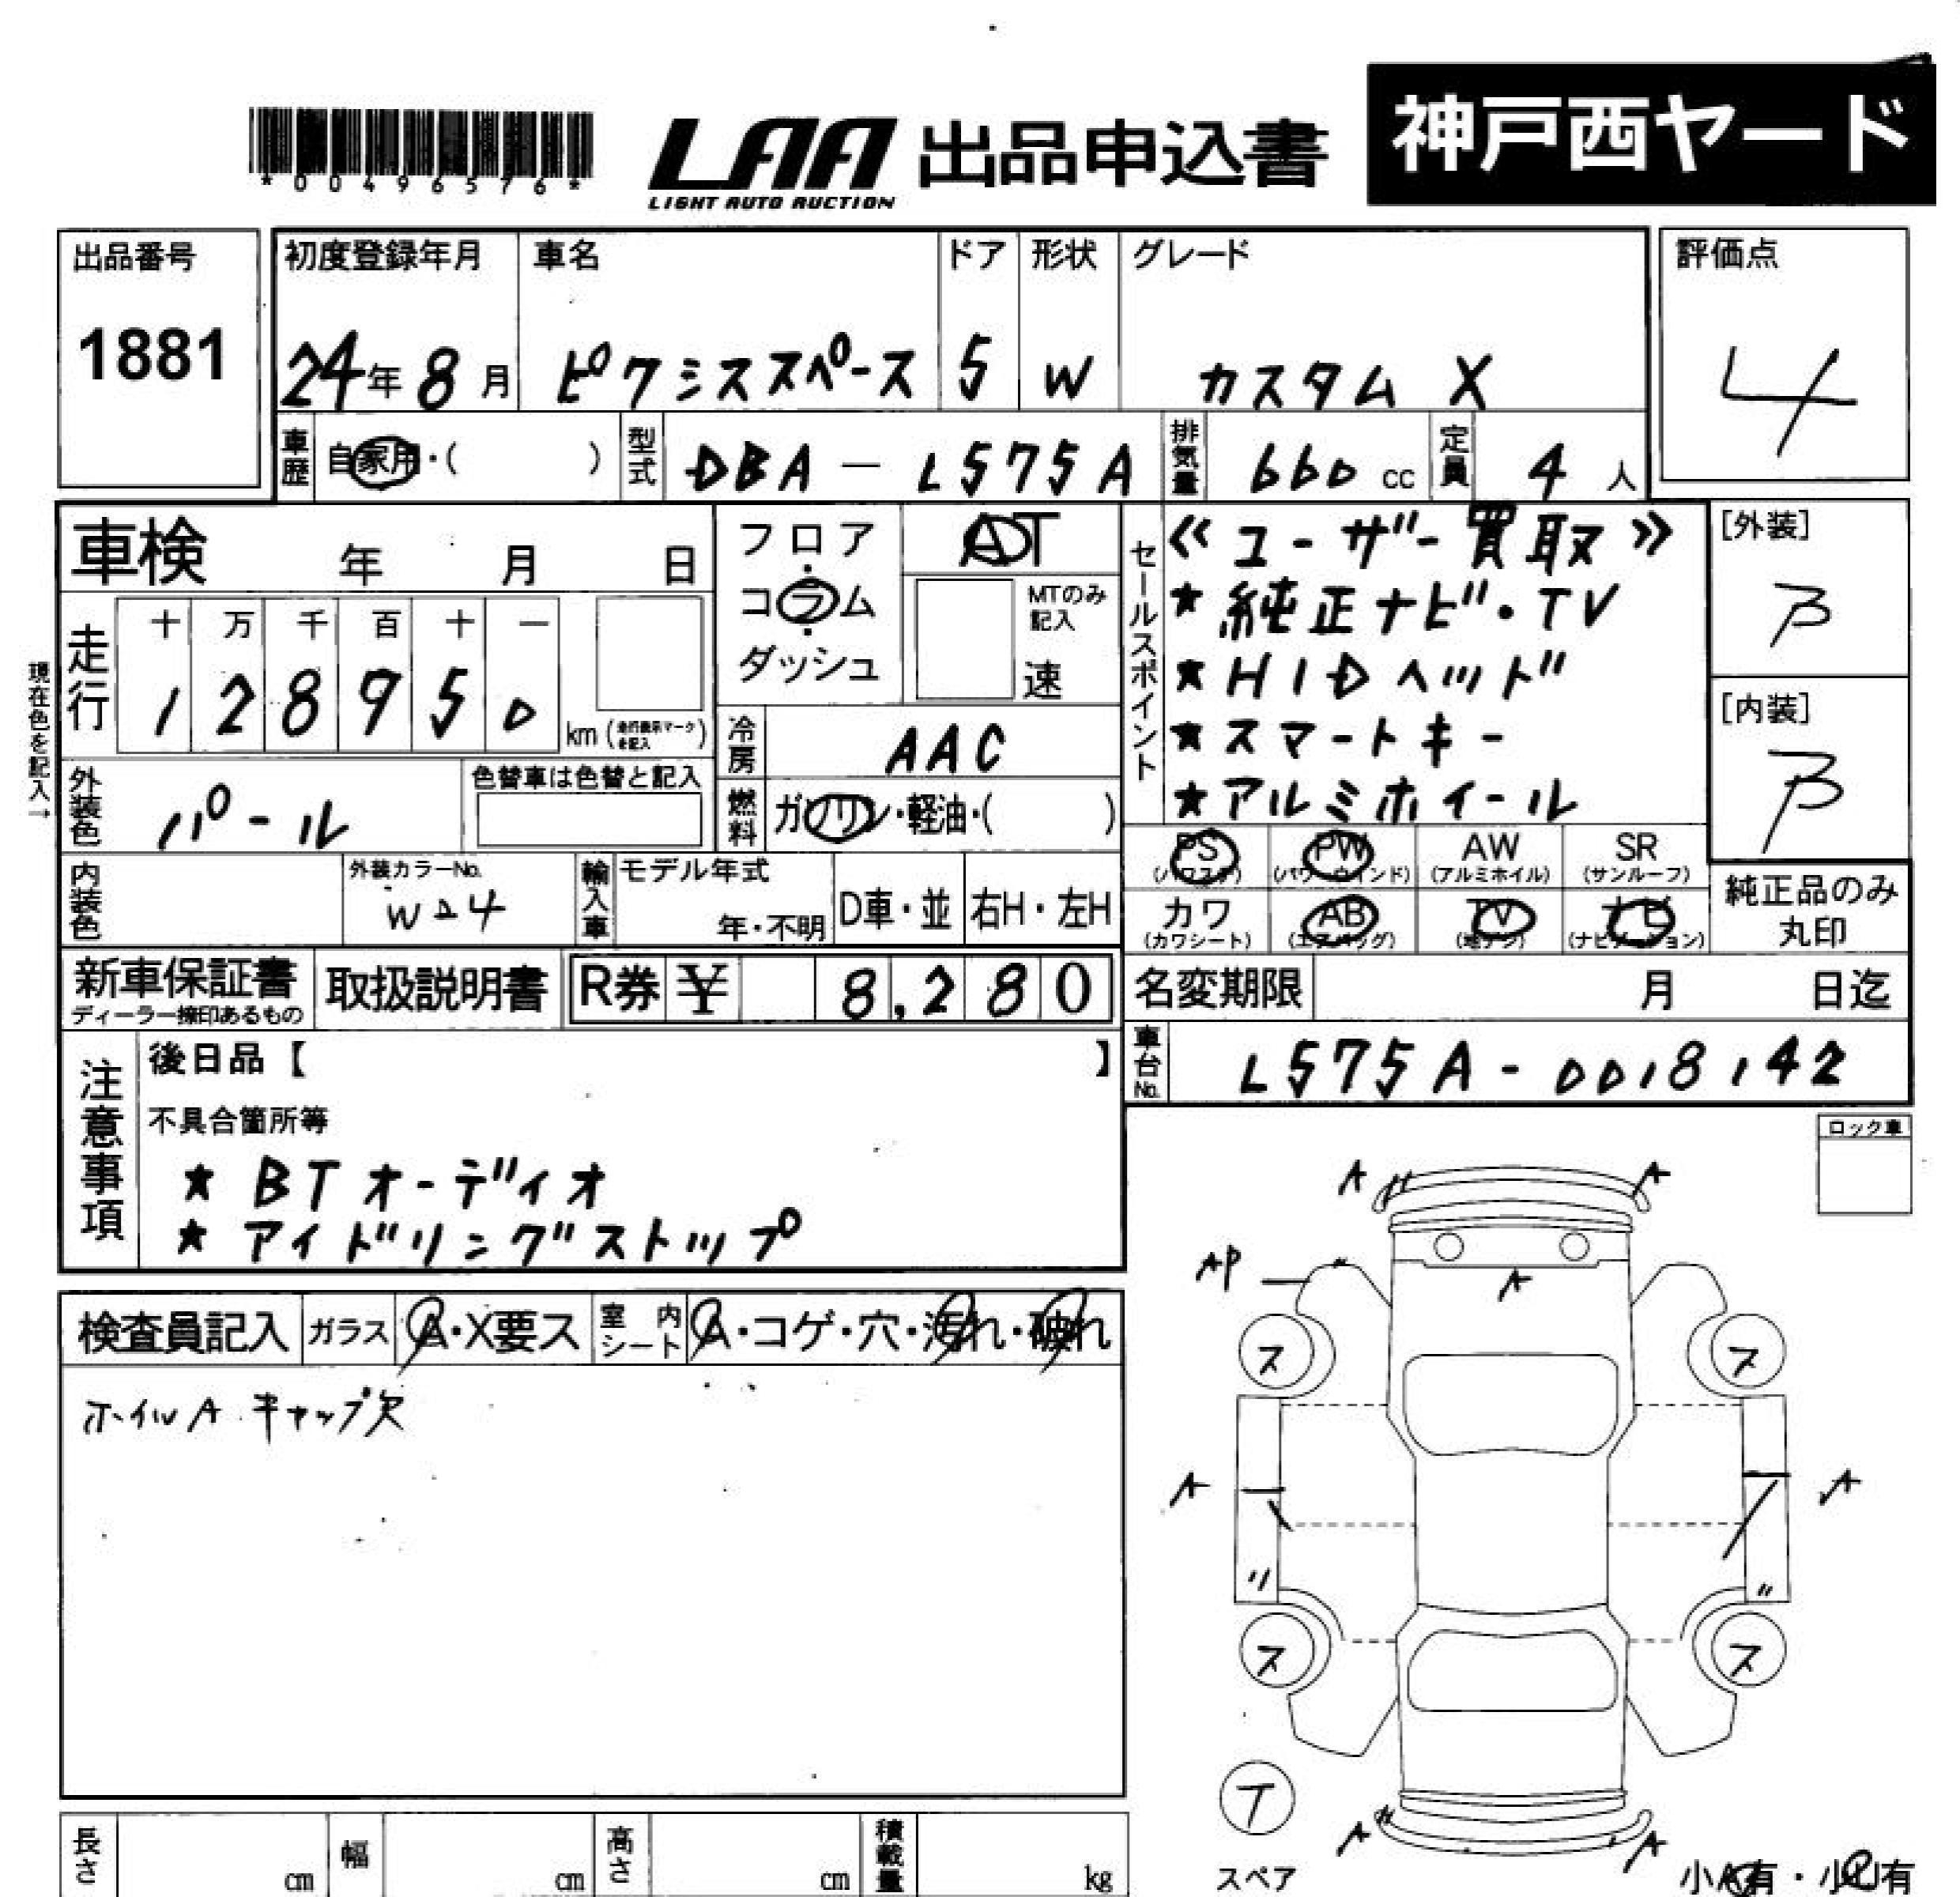 *00496576*
LAA 出品申込書
LIGHT AUTO AUCTION
神戸西ヤード
出品番号
1881
初度登録年月
24年8月
車名
ピクシススペース
ドア
5
形状
W
グレード
カスタム X
評価点
4
車歴 自家用・( )
型式 DBA-L575A
排気量 660 cc
定員 4 人
車検 年 月 日
走行
十 万 千 百 十 一
1 2 8 9 5 0
km (走行表示マークを記入)
現在色を記入→
外装色 パール
色替車は色替と記入
内装色
外装カラーNo.
W24
輸入車
モデル年式
年・不明
D車・並
右H・左H
フロア
・
コラム
・
ダッシュ
AT
MTのみ
記入
速
冷房 AAC
燃料 ガソリン・軽油・( )
セールスポイント
≪ユーザー買取≫
★純正ナビ・TV
★HIDヘッド
★スマートキー
★アルミホイール
[外装]
B
[内装]
B
PS
(パワステ)
PW
(パワーウインド)
AW
(アルミホイル)
SR
(サンルーフ)
カワ
(カワシート)
AB
(エアバッグ)
TV
(地デジ)
ナビ
(ナビゲーション)
純正品のみ
丸印
新車保証書
ディーラー捺印あるもの
取扱説明書
R券 ¥ 8,280
名変期限 月 日迄
車台No. L575A-0018142
注意事項
後日品【 】
不具合箇所等
★ BTオーディオ
★ アイドリングストップ
ロック車
検査員記入
ガラス A・X要ス
室内シート A・コゲ・穴・汚れ・破れ
ホイルA キャップ欠
A A
AP A
ス ス
A A
〃 〃
ス ス
T
スペア
A A
小A有・小U有
長さ cm
幅 cm
高さ cm
積載量 kg